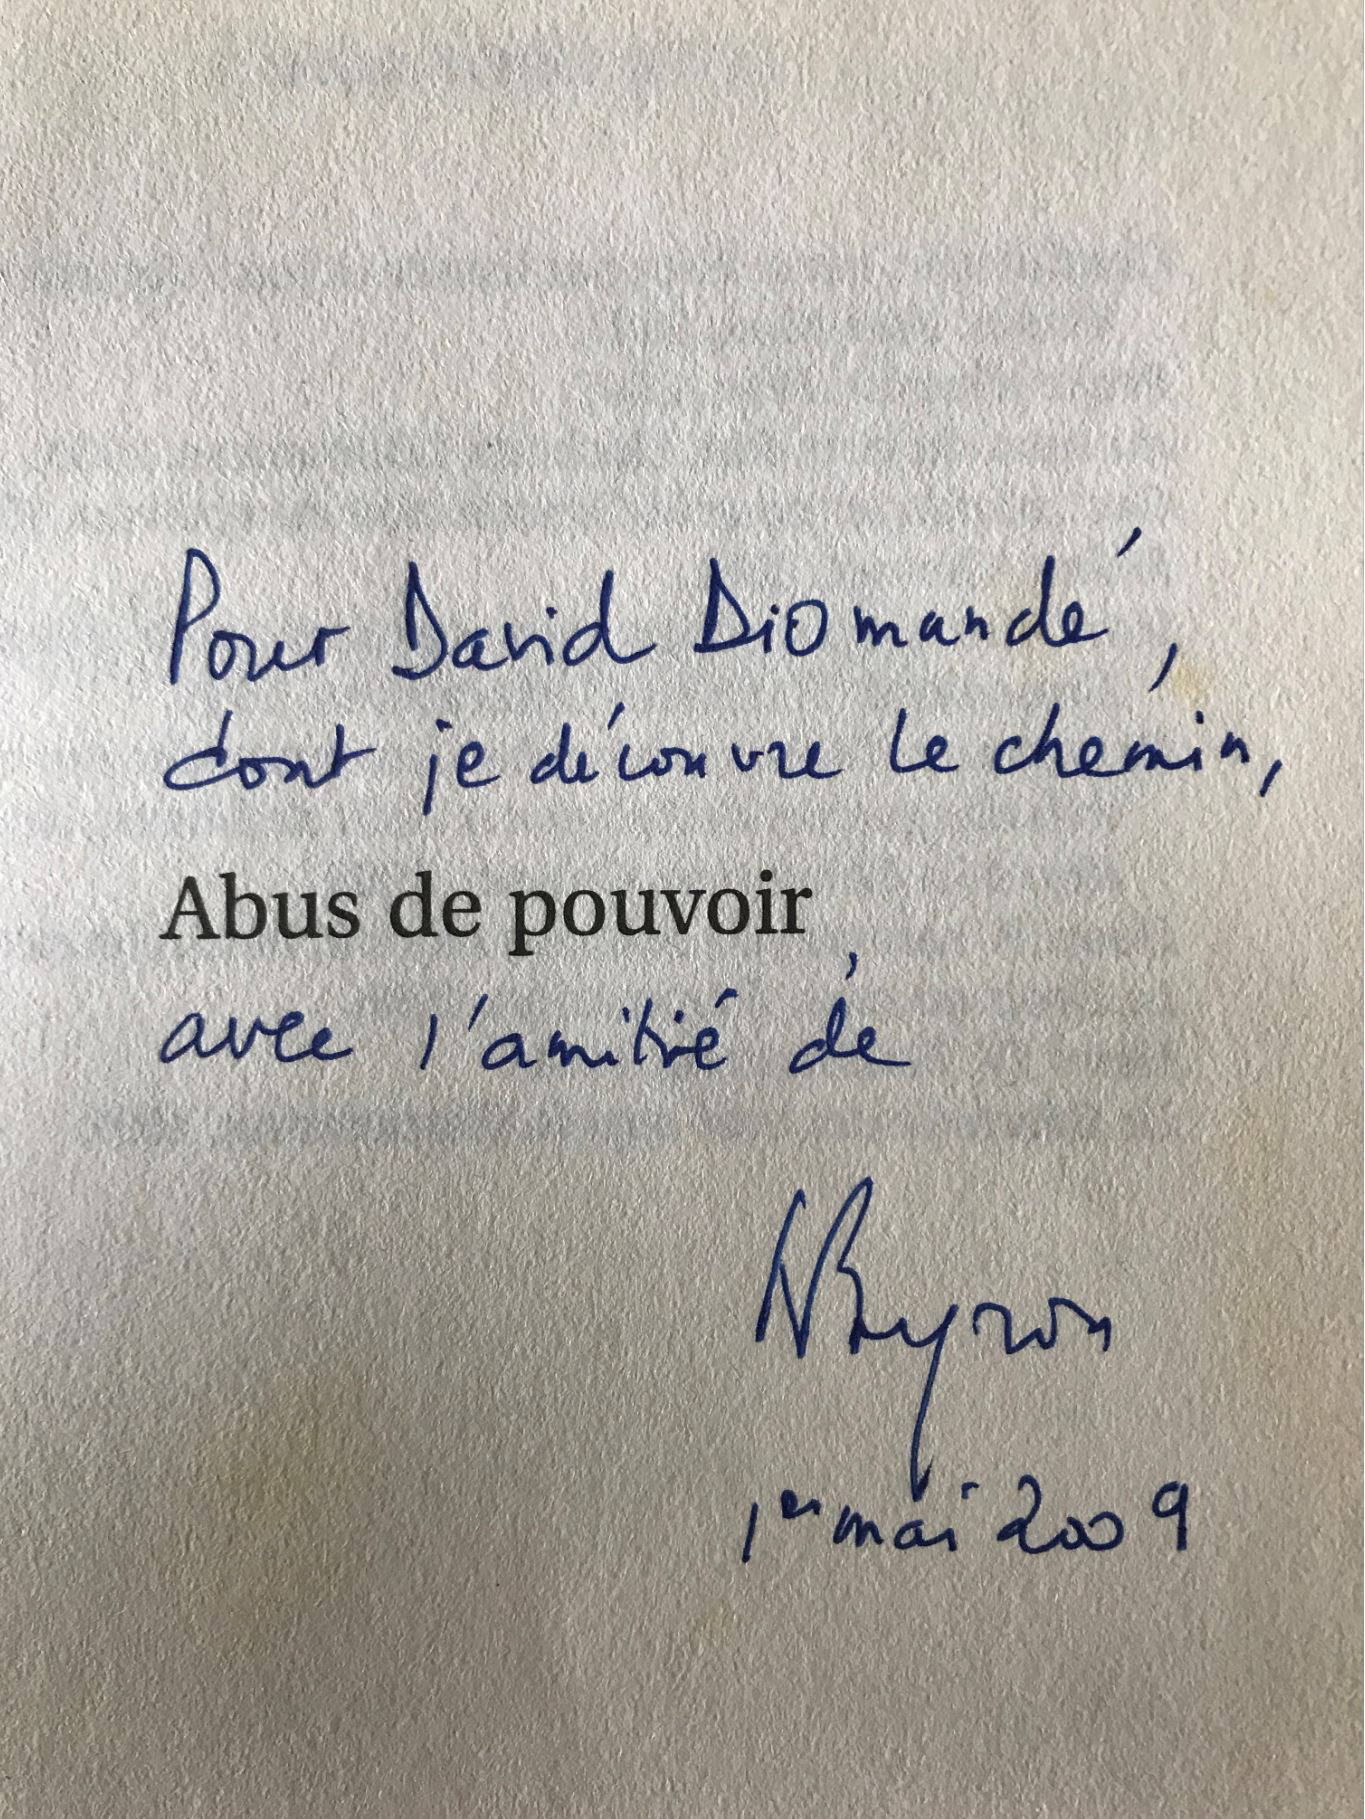 Pour David Diomandé,
dont je découvre le chemin,
Abus de pouvoir,
avec l'amitié de
Bayrou
1er mai 2009